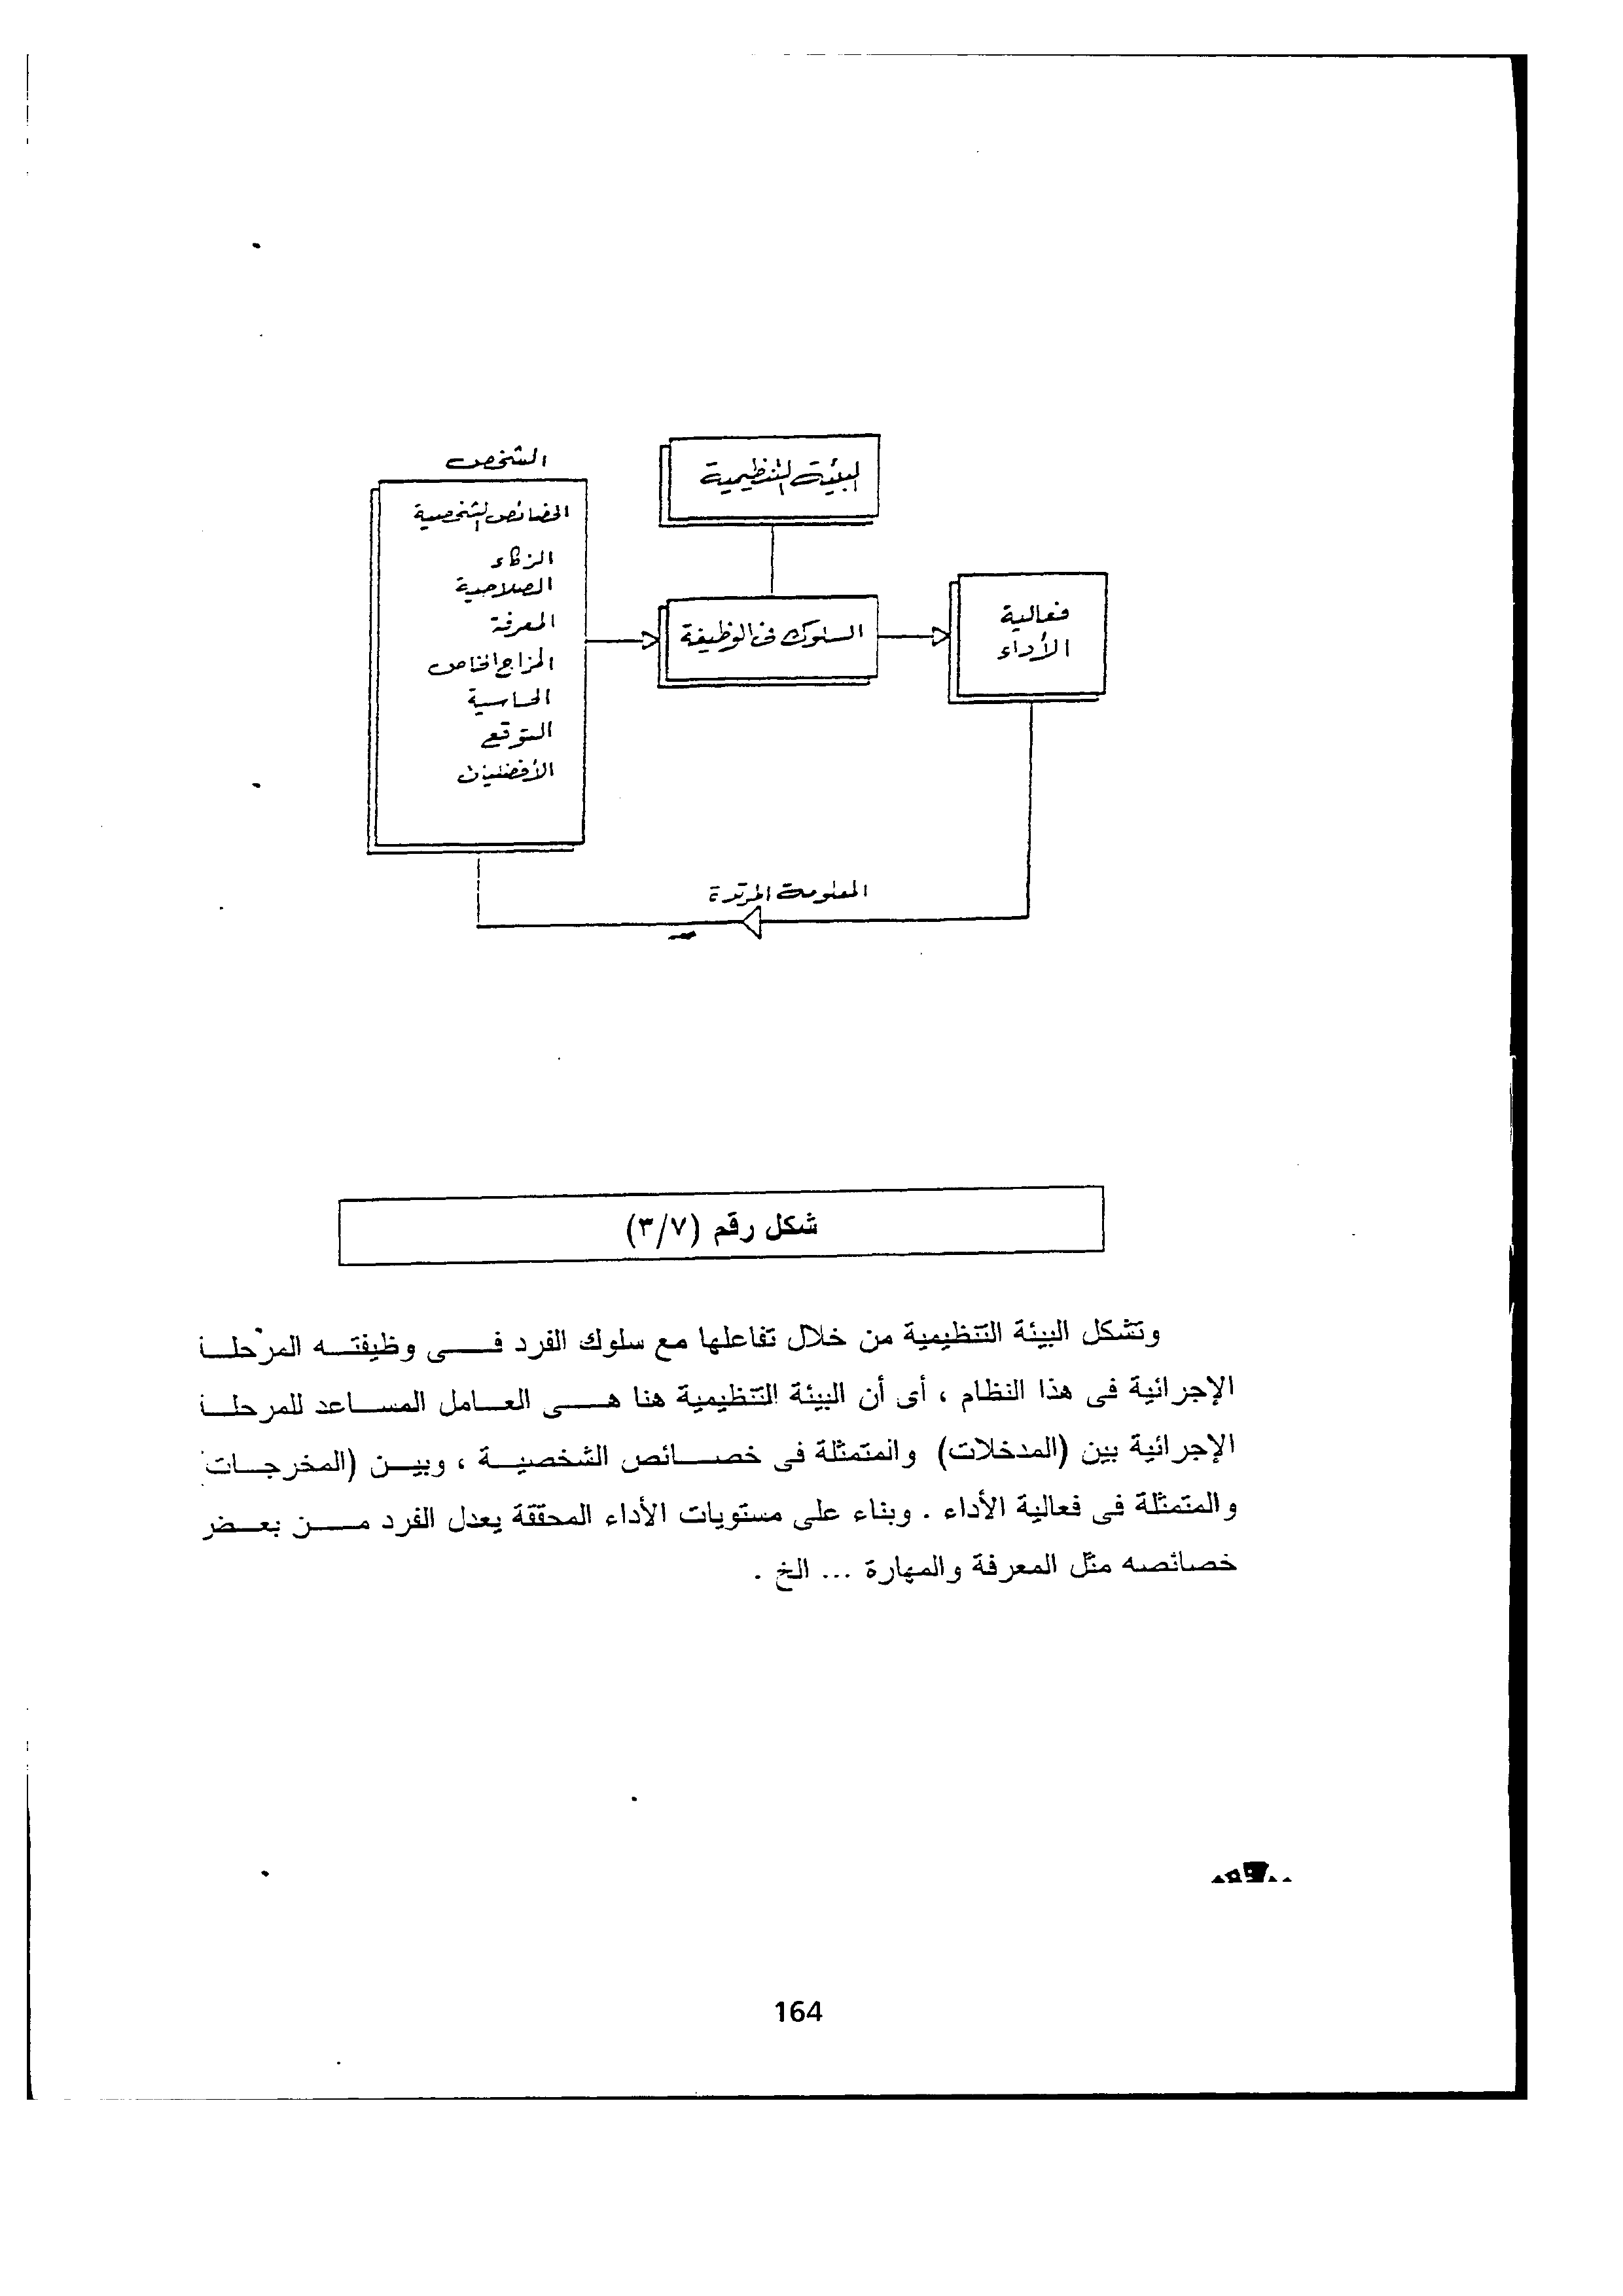 الشخص
الخصائص الشخصية
الزكاء
الصلاحية
المعرفة
المزاج الخاص
الحاسية
التوقع
الأفضليات
البيئة التنظيمية
السلوك فى الوظيفة
فعالية
الأداء
المعلومة المرتدة
شكل رقم (٣/٧)
وتشكل البيئة التنظيمية من خلال تفاعلها مع سلوك الفرد فى وظيفته
الإجرائية فى هذا النظام ، أى أن البيئة التنظيمية هنا هى العامل المساعد
الإجرائية بين (المدخلات) والمتمثلة فى خصائص الشخصية ، وبين (المخرجات
والمتمثلة فى فعالية الأداء . وبناء على مستويات الأداء المحققة يعدل الفرد من بعض
خصائصه مثل المعرفة والمهارة ... الخ .
164